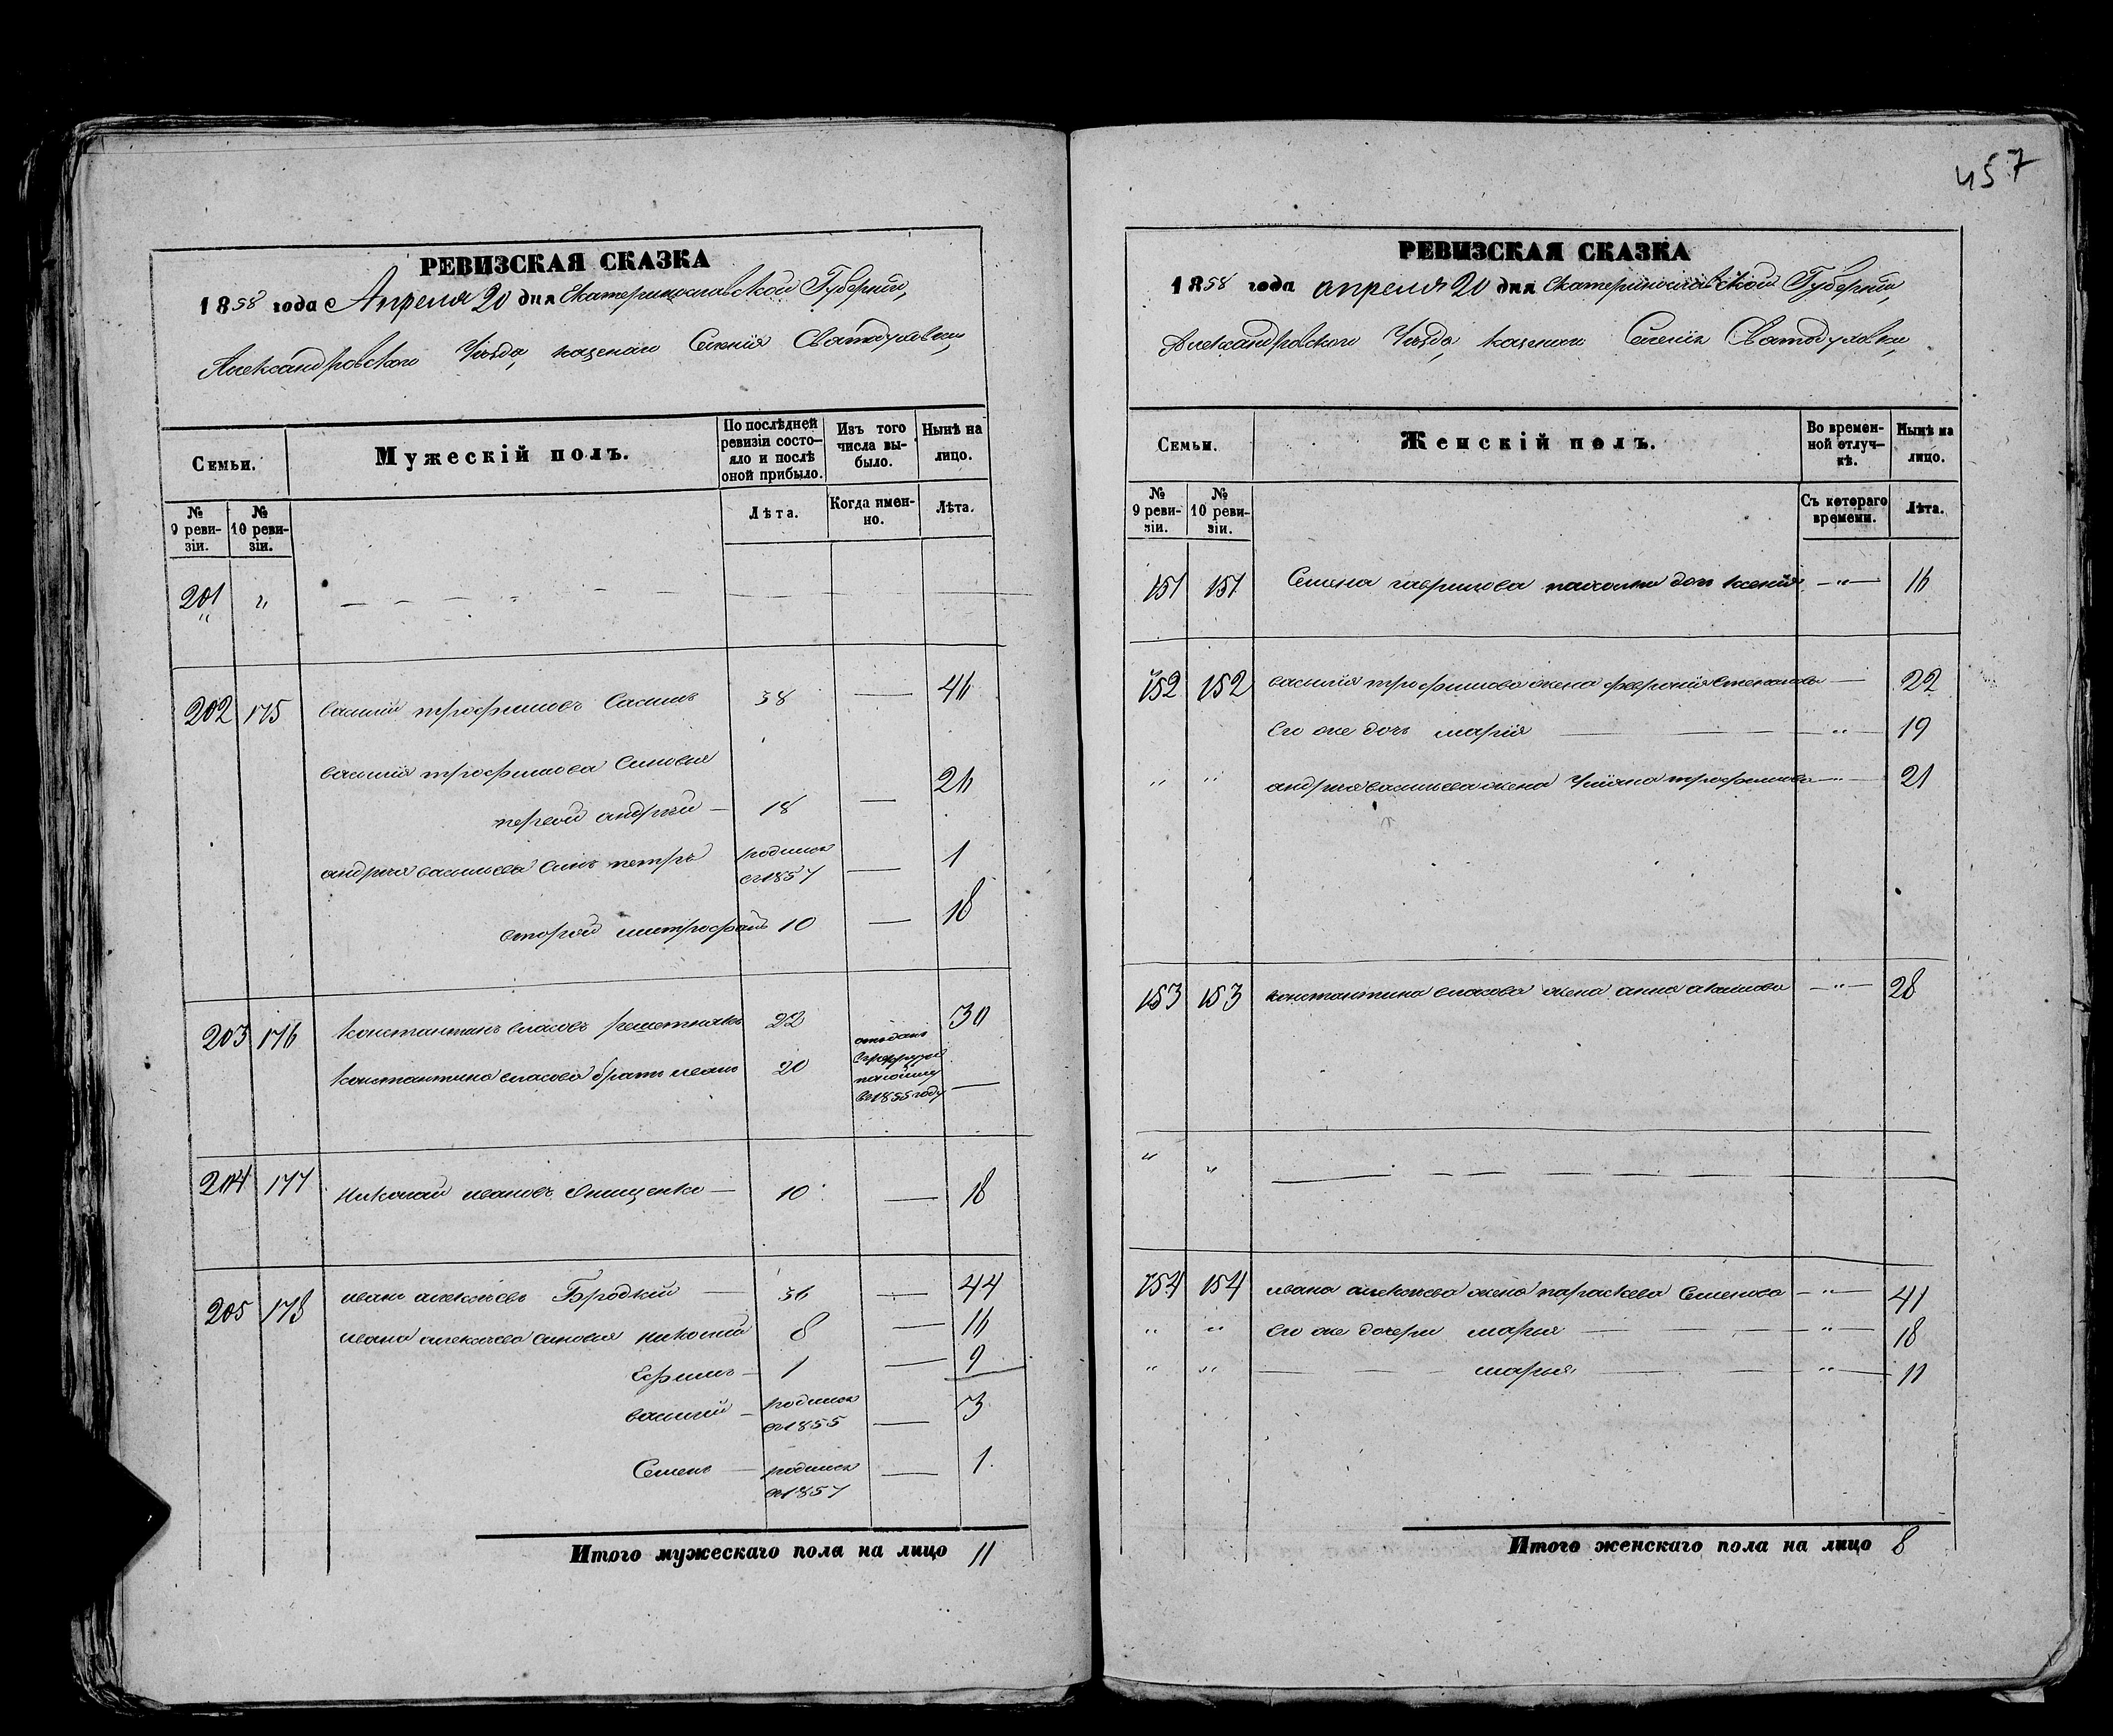 457
РЕВИЗСКАЯ СКАЗКА
1858 года Апреля 20 дня Екатеринославской Губернии,
Александровского Уѣзда, казенаго Селенія Святодуховки,
Семьи.
Мужескій полъ.
По послѣдней ревизіи состо-
яло и послѣ оной прибыло.
Изъ того числа вы-
было.
Нынѣ на лицо.
№ 9 реви-
зіи.
№ 10 реви-
зіи.
Лѣта.
Когда имен-
но.
Лѣта.
201 "
202 175 василий трофимовъ 38 — 46
василия трофимова Синовья
первой андрѣй — 18 — 26
андрѣя васильева Синъ петръ родился въ 1857 — 1
второй митрофанъ 10 — 18
203 176 Константинъ власовъ решетнякъ 22 30
Константина власова братъ иванъ 20 отъданъ в 1855 году —
204 177 Николай ивановъ Онищенко — 10 — 18
205 178 иванъ алексѣевъ Бродкий — 36 — 44
ивана алексѣева синовья николай 8 — 16
Ефимъ — 1 — 9
василий — родился въ 1855 — 3
Семенъ — родился въ 1857 — 1
Итого мужескаго пола на лицо 11
РЕВИЗСКАЯ СКАЗКА
1858 года апреля 20 дня Екатеринославской Губернии,
Александровского Уѣзда, казенаго Селенія Святодуховки,
Семьи.
Женскій полъ.
Во времен-
ной отлуч-
кѣ.
Нынѣ на лицо.
№ 9 реви-
зіи.
№ 10 реви-
зіи.
Съ котораго времени.
Лѣта.
151 151 Семена гаврилова дочь ксенія — " — 16
152 152 василія трофимова жена февронія Степанова — 22
Его же дочь марія — " — 19
" " андрѣя васильева жена Уліяна трофимова — " — 21
153 153 константина власова жена анна акимова — " — 28
" "
154 154 ивана алексѣева жена параскева Семенова — " — 41
" " Его же дочери марія — " — 18
" " — марья — " — 11
Итого женскаго пола на лицо 8